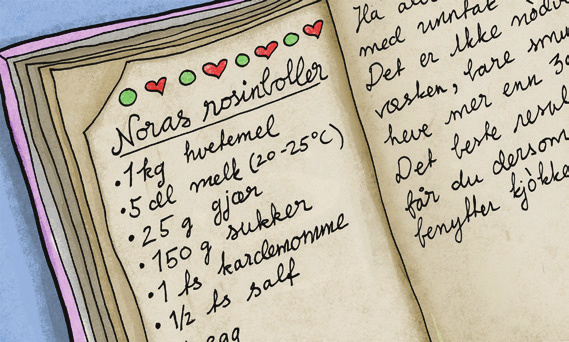 Noras rosinboller
• 1 kg hvetemel
• 5 dl melk (20-25°C)
• 25 g gjær
• 150 g sukker
• 1 ts kardemomme
• 1/2 ts salt
egg
Ha al
med unntak
Det er ikke nødv
væsken, bare smu
heve mer enn 30
Det beste resul
får du dersom
benytter kjøkke